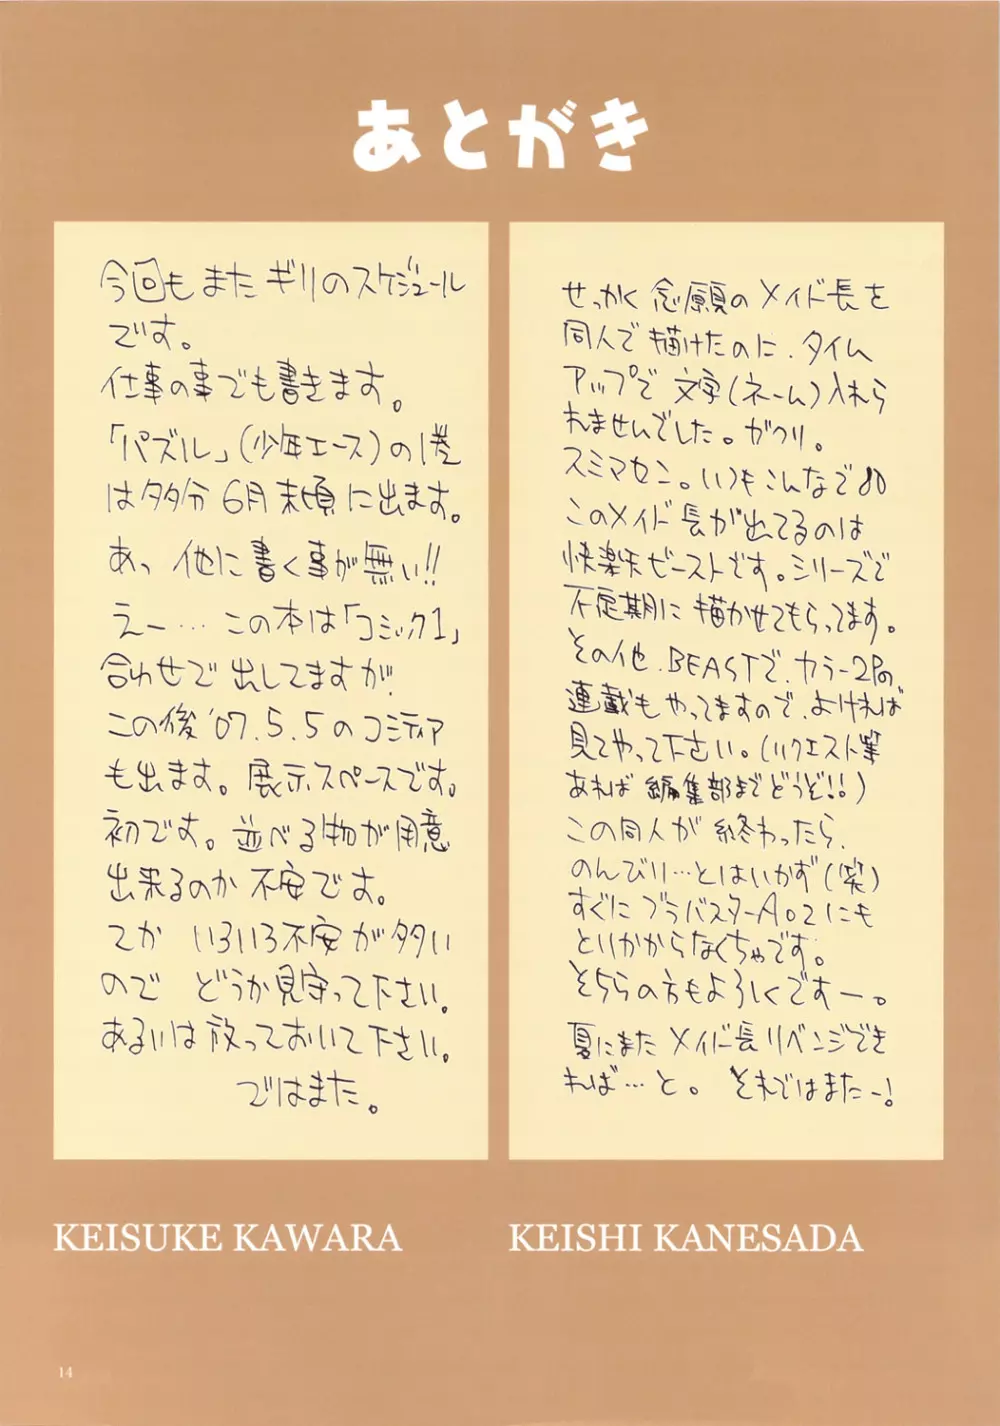 あとがき
今回もまたギリのスケジュール
です。
仕事の事でも書きます。
「パズル」(少年エース)の1巻
は多分6月末頃に出ます。
あっ 他に書く事が無い!!
えー…この本は「コミック1」
合わせで出してますが、
この後'07.5.5のコミティア
も出ます。展示スペースです。
初です。並べる物が用意
出来るのか不安です。
てか いろいろ不安が多い
ので どうか見守って下さい。
あるいは放っておいて下さい。
ではまた。
KEISUKE KAWARA
せっかく念願のメイド長を
同人で描けたのに、タイム
アップで文字(ネーム)入れら
れませんでした。ガクリ。
スミマセン。いつもこんなで
このメイド長が出てるのは
快楽天ビーストです。シリーズで
不定期に描かせてもらってます。
その他、BEASTで、カラー2Pの
連載もやってますので、よければ
見てやって下さい。(リクエスト等
あれば編集部までどうぞ!!)
この同人が終わったら、
のんびり…とはいかず(笑)
すぐにブラバスターA02にも
とりかからなくちゃです。
そちらの方もよろしくですー。
夏にまたメイド長リベンジでき
れば…と。 それではまたー!
KEISHI KANESADA
14